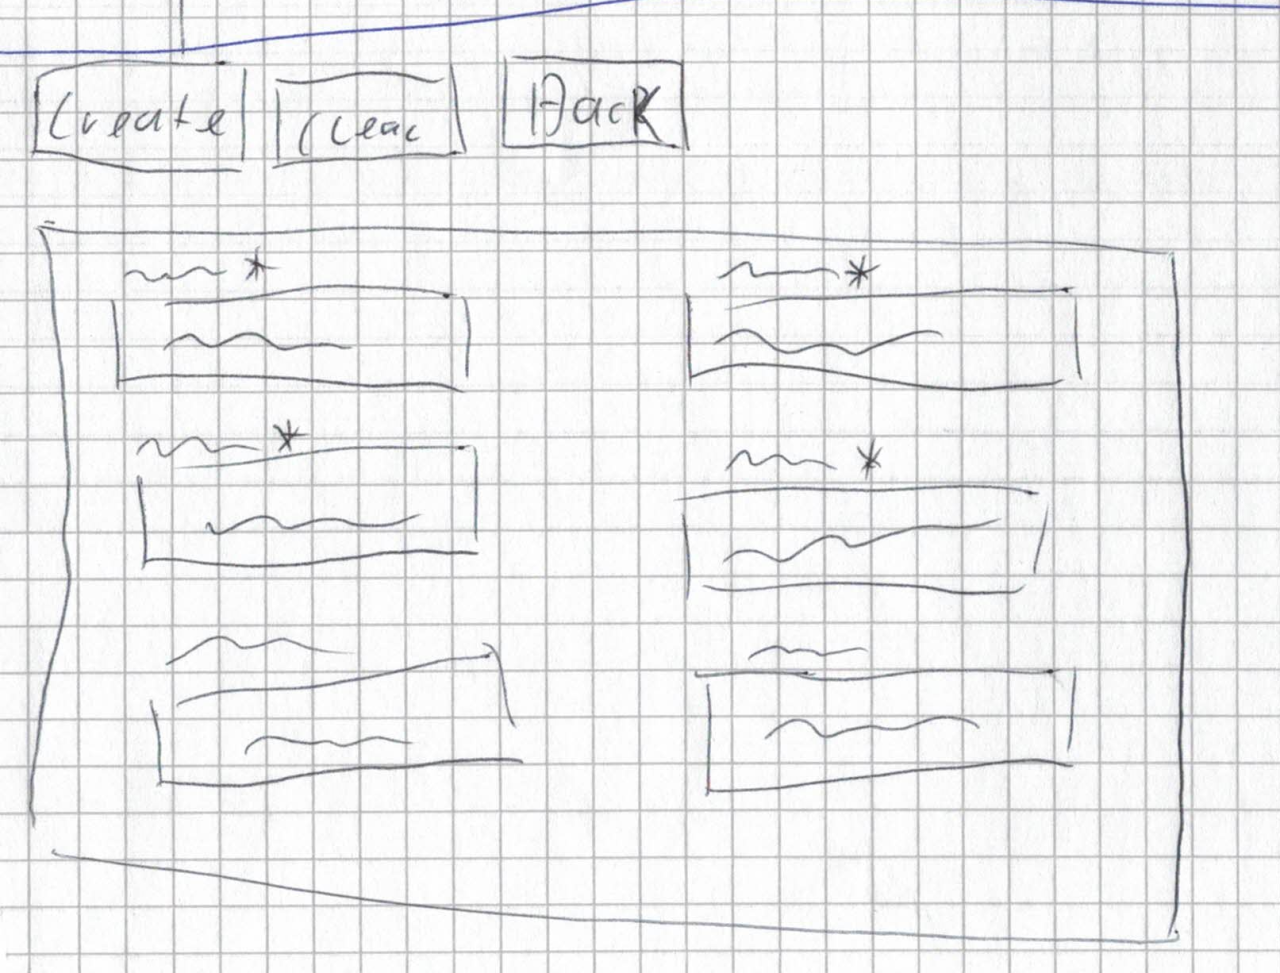 Create Clear Back
* *
* *